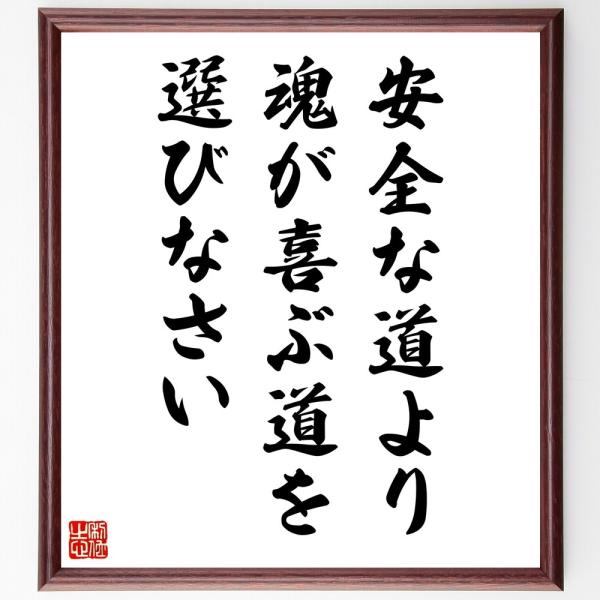 安全な道より
魂が喜ぶ道を
選びなさい